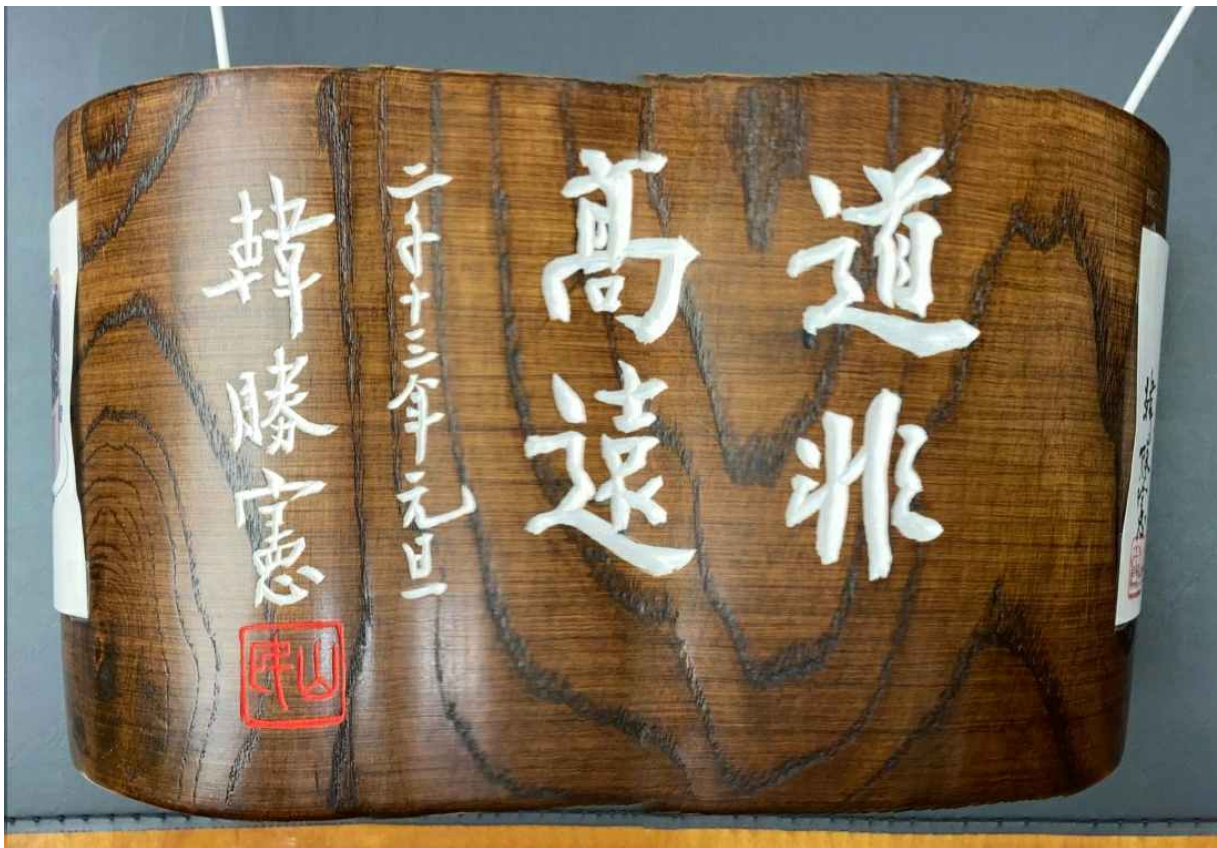 道非
高遠
二千十三年元旦
韓勝憲